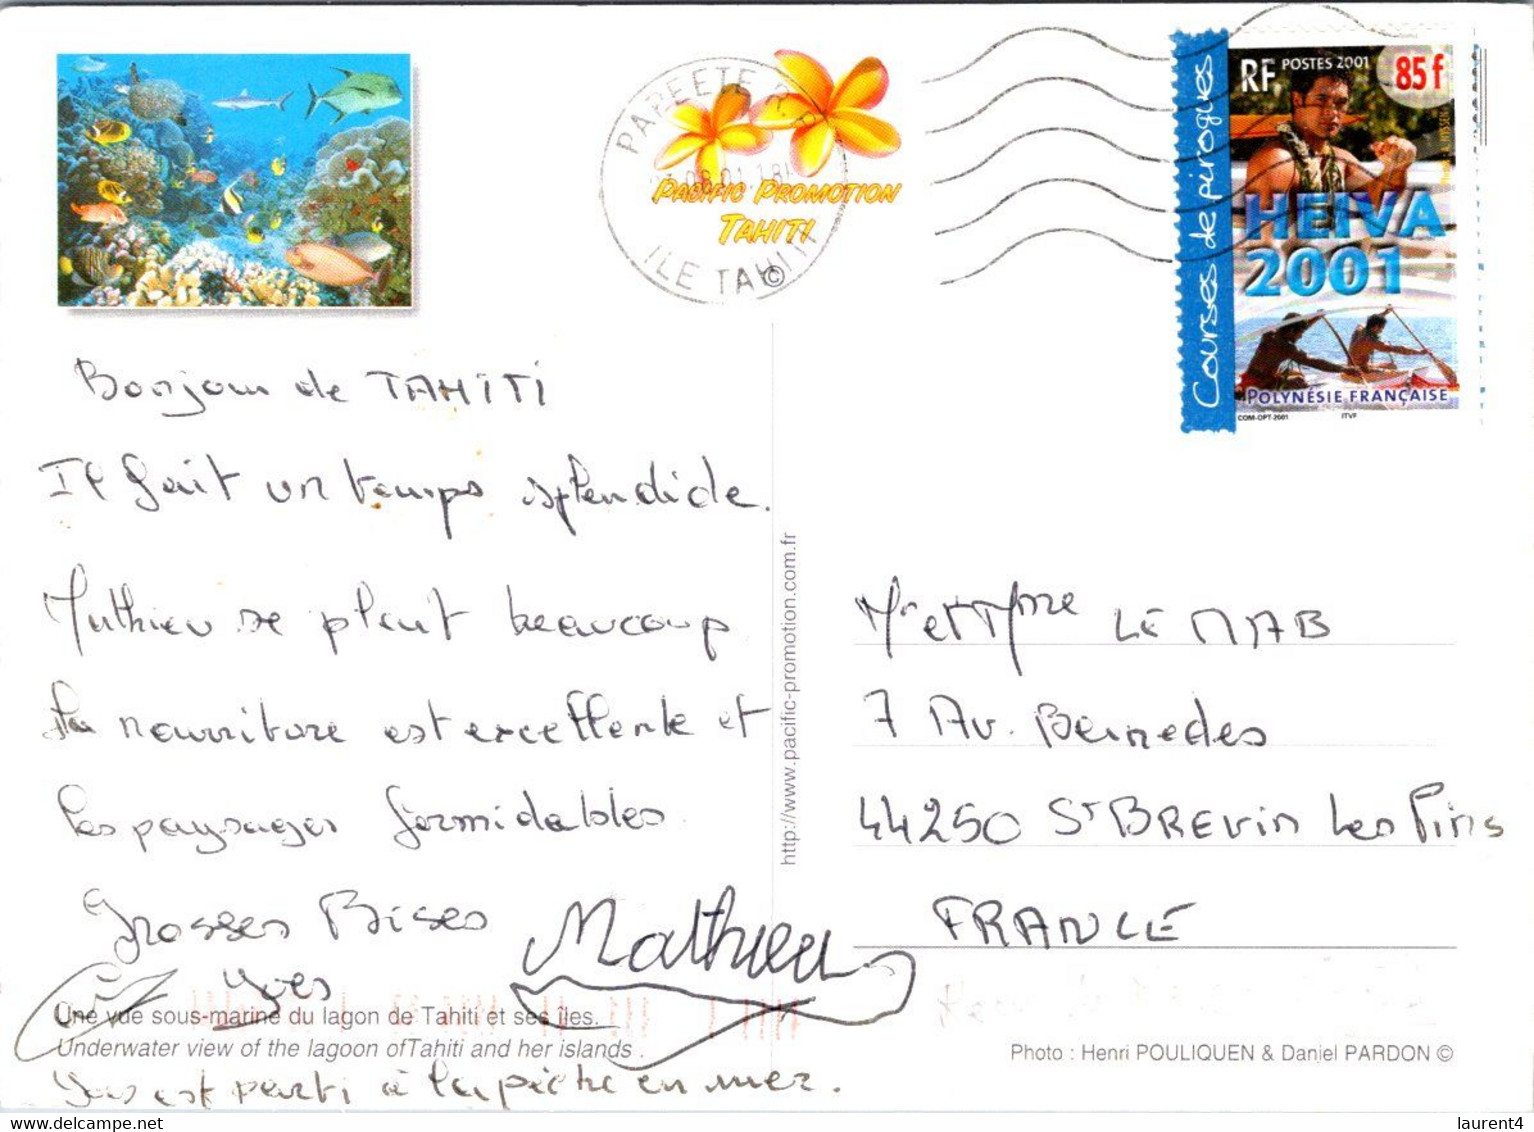 PAPEETE R.P
ILE TAHITI
PACIFIC PROMOTION
TAHITI
©
Courses de pirogues
RF POSTES 2001 85f
HEIVA
2001
POLYNÉSIE FRANÇAISE
COM-OPT-2001 ITVF
Bonjour de TAHITI
Il fait un temps splendide.
Mathieu se plait beaucoup
La nourriture est excellente et
les paysages formidables
Grosses Bises
Yves
Mathieu
Une vue sous-marine du lagon de Tahiti et ses îles.
Underwater view of the lagoon ofTahiti and her islands .
Yves est parti à la pêche en mer.
http://www.pacific-promotion.com.fr
Mr et Mme LE MAB
7 Av. Bernedes
44250 St BREVIN Les Pins
FRANCE
Photo : Henri POULIQUEN & Daniel PARDON ©
laurent4